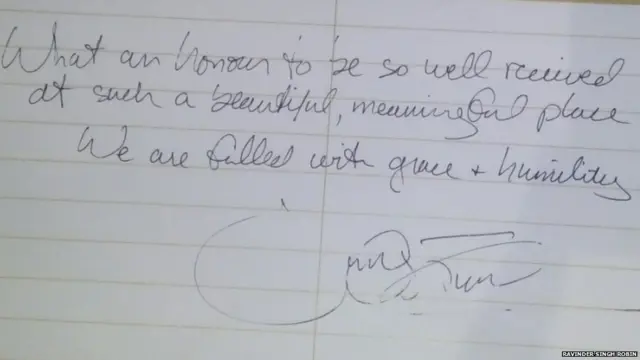 What an honour to be so well received
at such a beautiful, meaningful place
We are filled with grace + humility
RAVINDER SINGH ROBIN